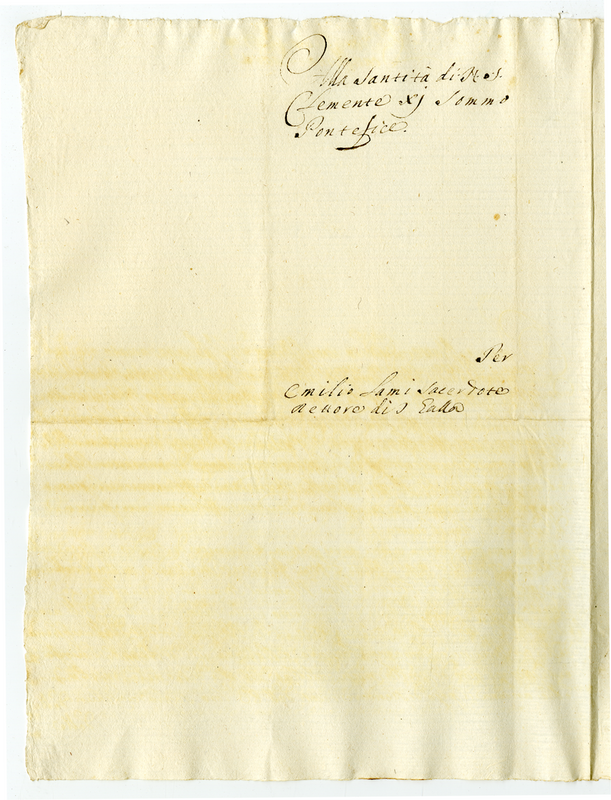 Alla Santità di N. S.
Clemente xj Sommo
Pontefice.
Per
Emilio Lami Sacerdote
Rettore di S Galla